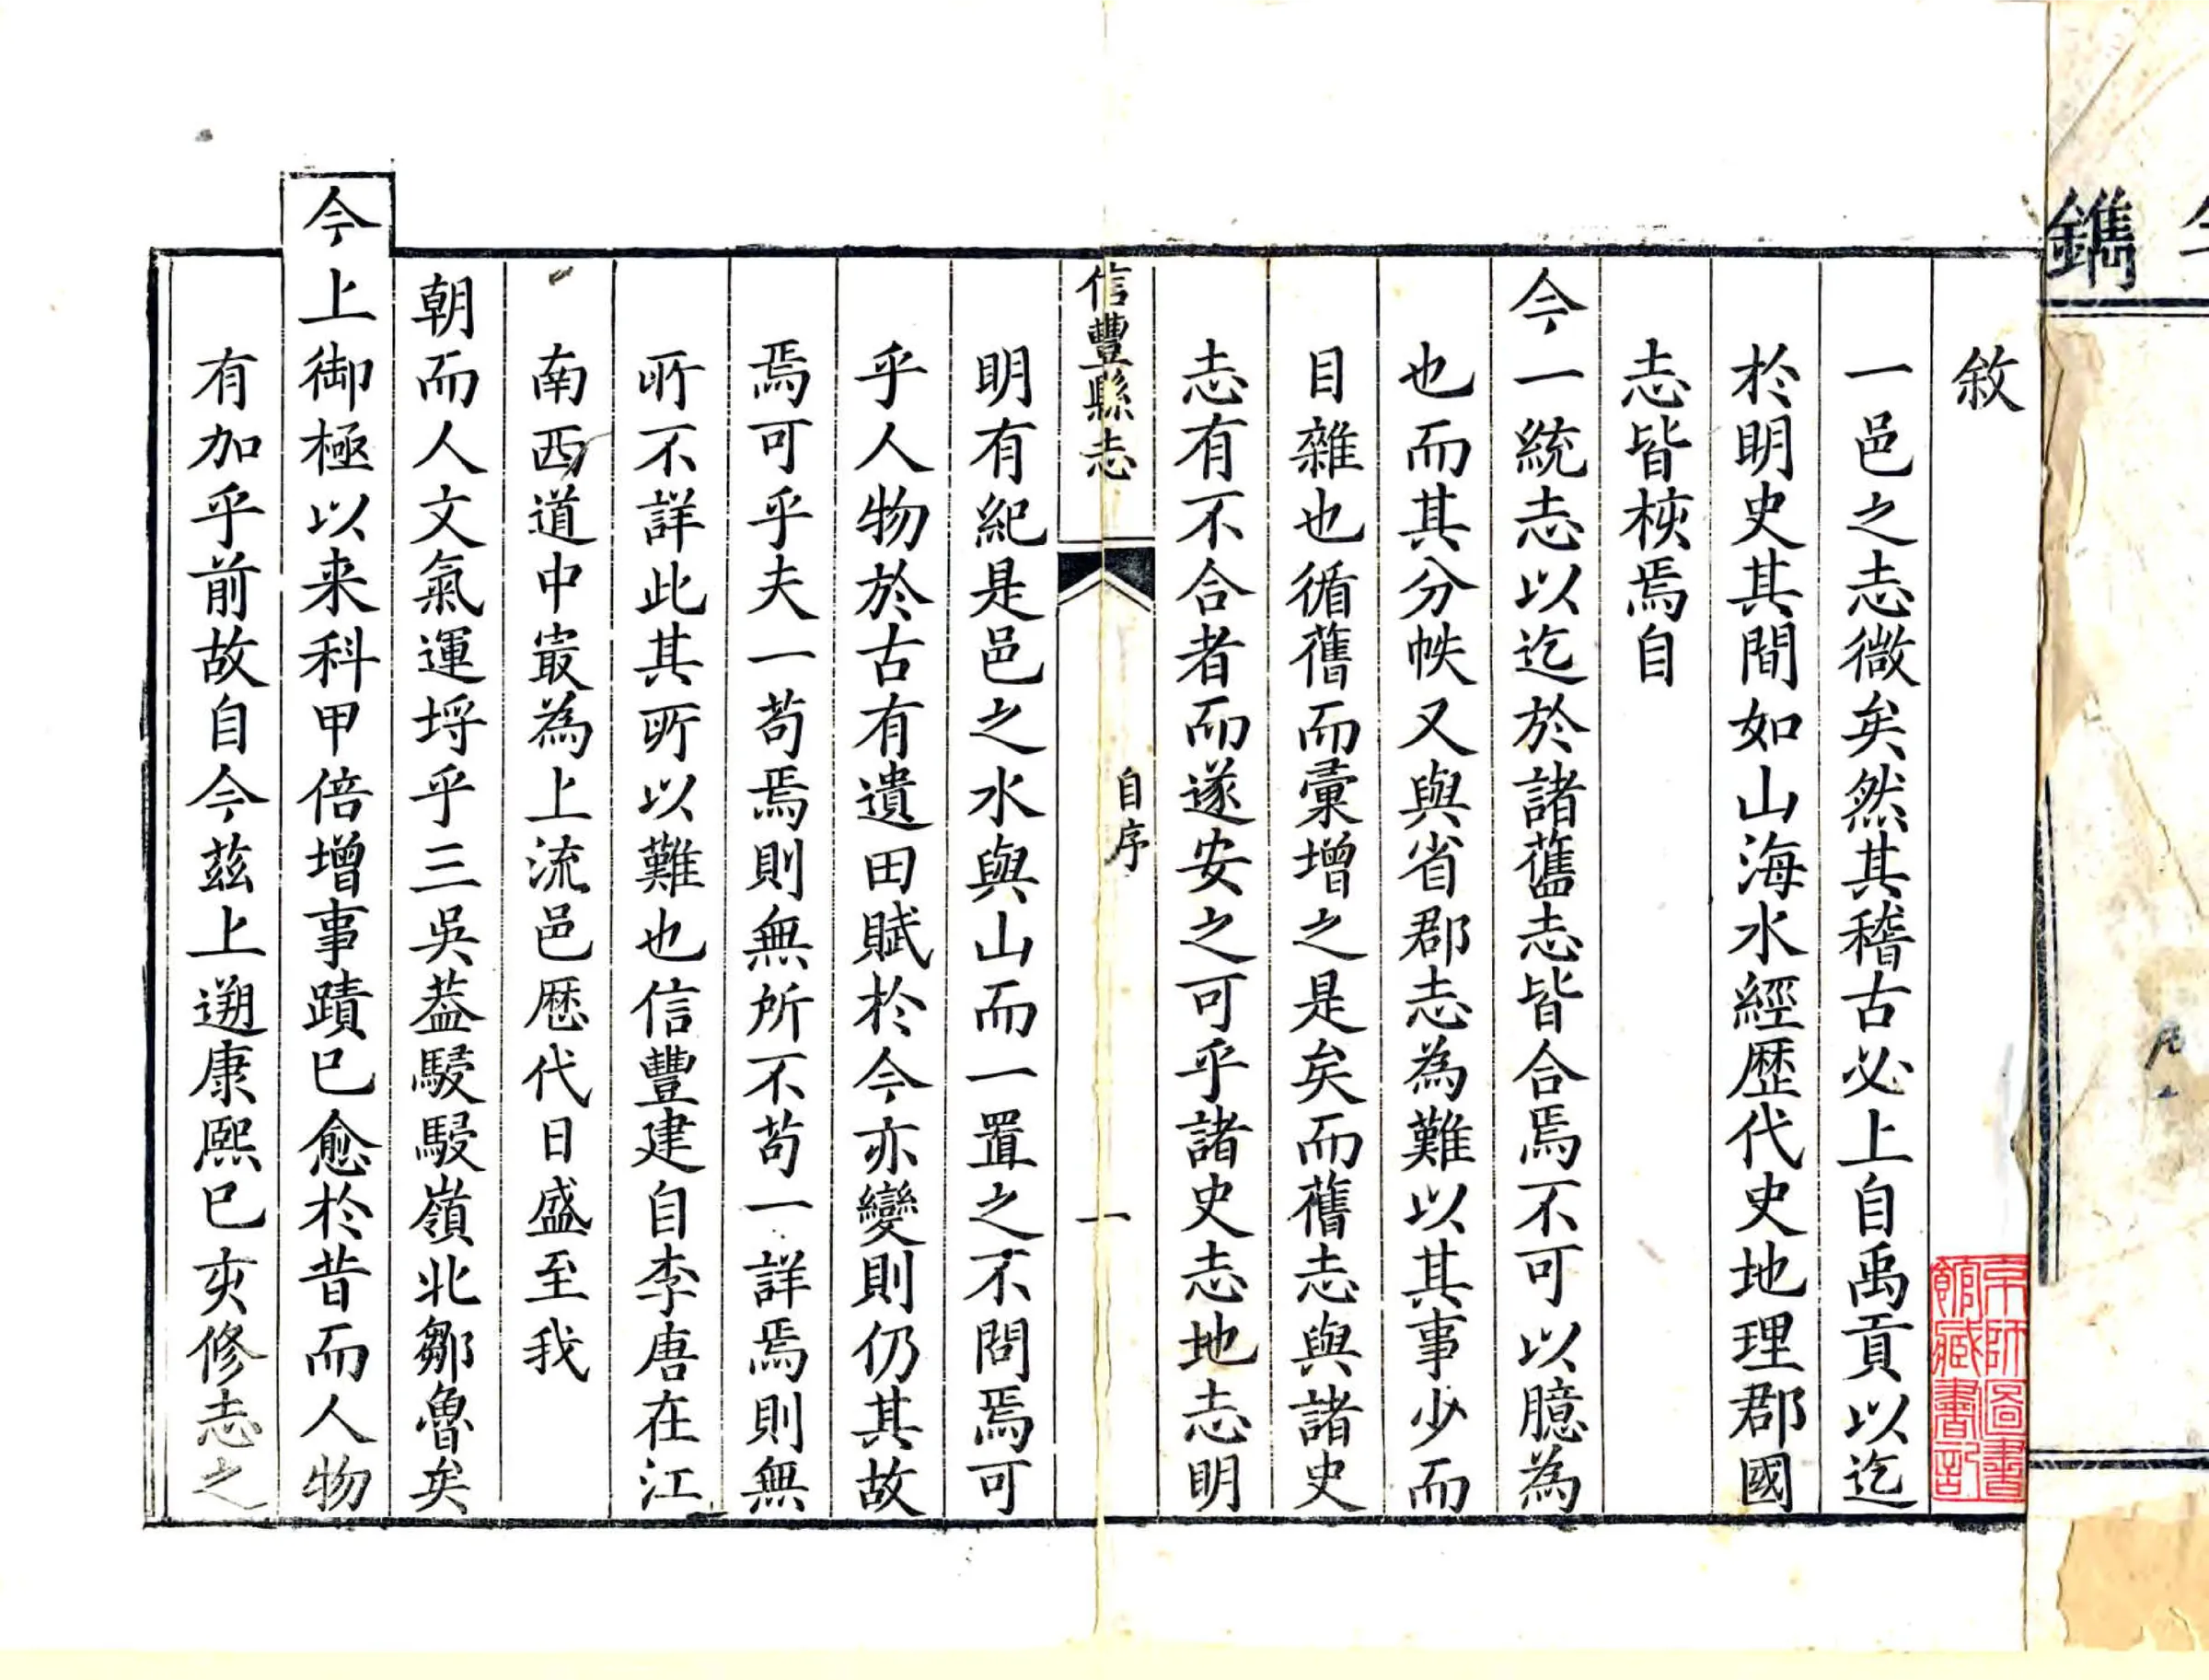 鐫
敘
一邑之志微矣然其稽古必上自禹貢以迄
於明史其間如山海水經歷代史地理郡國
志皆核焉自
今一統志以迄於諸舊志皆合焉不可以臆為
也而其分帙又與省郡志為難以其事少而
目雜也循舊而彙增之是矣而舊志與諸史
志有不合者而遂安之可乎諸史志地志明
信豐縣志
自序
一
明有紀是邑之水與山而一置之不問焉可
乎人物於古有遺田賦於今亦變則仍其故
焉可乎夫一苟焉則無所不苟一詳焉則無
所不詳此其所以難也信豐建自李唐在江
南西道中㝡為上流邑歷代日盛至我
朝而人文氣運埒乎三吳葢駸駸嶺北鄒魯矣
今上御極以来科甲倍增事蹟已愈於昔而人物
有加乎前故自今兹上遡康熙巳亥修志之
京師圖書
館藏書記